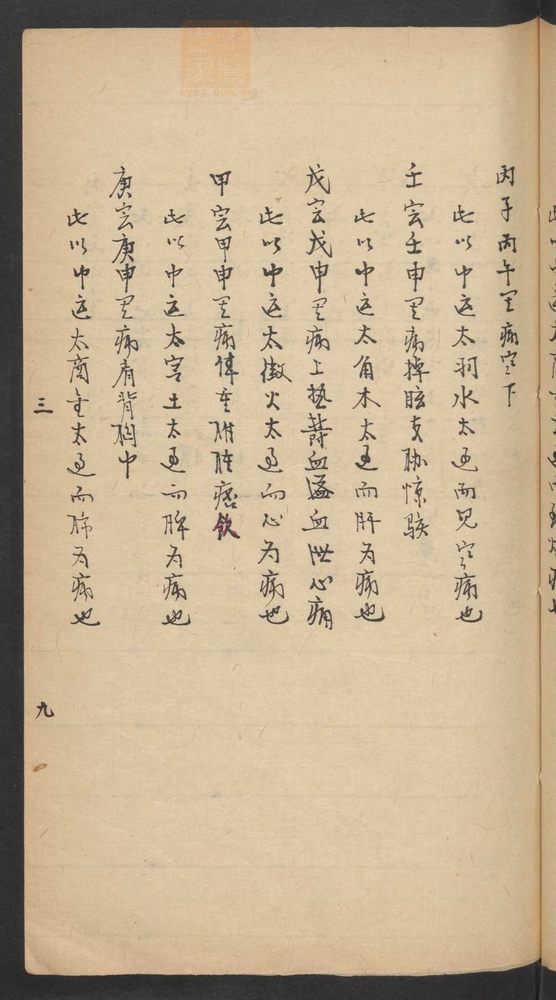 丙子丙午其病寒下
此以中运太羽水太过而见寒病也
壬寅壬申其病掉眩支胁惊骇
此以中运太角木太过而肝为病也
戊寅戊申其病上热郁血溢血泄心痛
此以中运太徵火太过而心为病也
甲寅甲申其病体重胕肿痞饮
此以中运太宫土太过而脾为病也
庚寅庚申其病肩背胸中
此以中运太商金太过而肺为病也
三
九